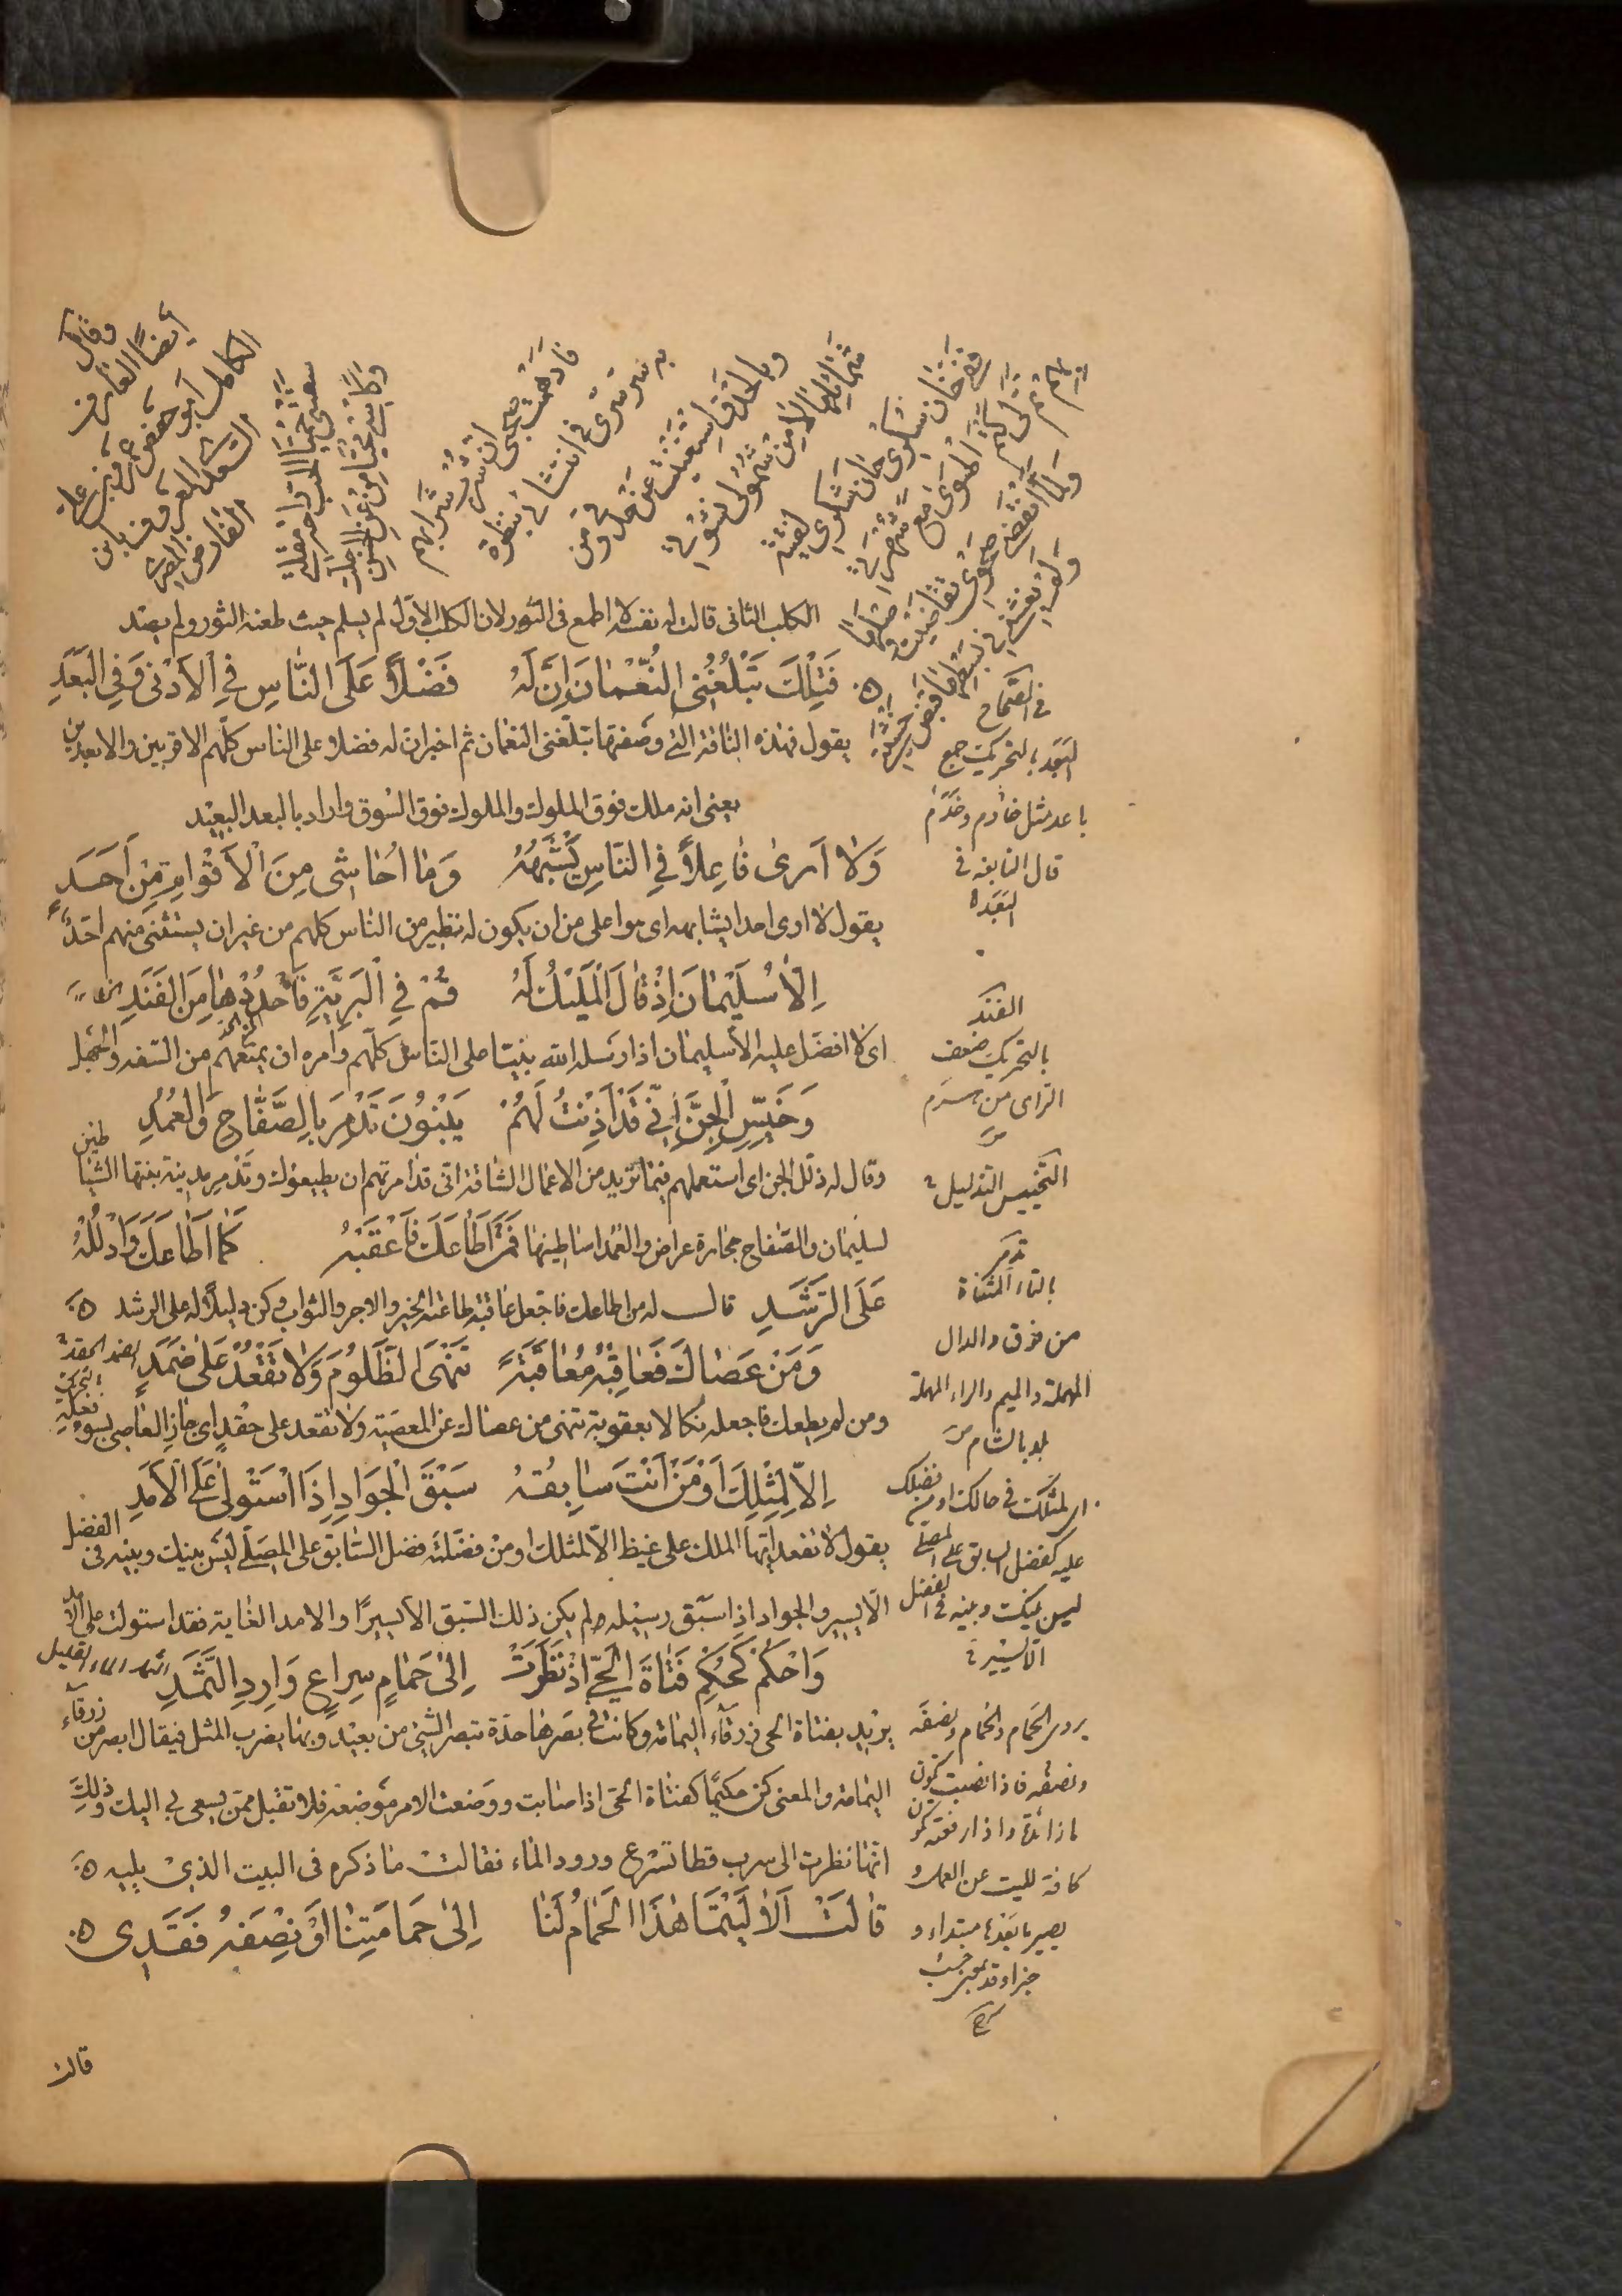 وقال
أيضا العارف
الكامل أبو حفص عمر بن علي
السعدي المعروف بابن
الفارض المصري
سقتني حميا الحب راحة مقلتي
وكأسي محيا من عن الحسن جلت
فأوهمت صحبي ان شرب شرابهم
به سر سري في انتشائي بنظرة
وبالحدق استغنيت عن قدحي ومن
شمائلها لا من شمولي نشوتي
ففي حان سكري حان شكري لفتية
بهم تم لي كتم الهوى مع شهرتي
ولما انقضى صحوي تقاضيت وصلها
ولم يغشني في بسطها قبض خشية
الكلب الثاني قالت له نفسه لا اطمع في الثور لان الكلب الاول لم يسلم حيث طعنه الثور ولم يصد
فَتِلْكَ تُبْلِغُنِي النُّعْمَانَ اِنَّ لَهُ فَضْلاً عَلَى النَّاسِ فِي الْأَدْنَى وَفِي الْبَعَدِ
يقول فهذه الناقة التي وصفتها تبلغني النعمان ثم اخبر ان له فضلا على الناس كلهم الاقربين والابعدين
يعني انه ملك فوق الملوك والملوك فوق السوق واراد بالبعد البعيد
وَلَا اَرَى فَاعِلاً فِي النَّاسِ يُشْبِهُهُ وَمَا اُحَاشِي مِنَ الْأَقْوَامِ مِنْ اَحَدِ
يقول لا ارى احدا يشابهه اى هو اعلى من ان يكون له نظير من الناس كلهم من غير ان يستثنى منهم احد
اِلَّا سُلَيْمَانَ اِذْ قَالَ الْمَلِيكُ لَهُ قُمْ فِي الْبَرِيَّةِ فَاحْدُدْهَا مِنَ الْفَنَدِ
اى لا افضل عليه الا سليمان اذ ارسله الله نبيا على الناس كلهم وامره ان يمنعهم من السفه والجهل
وَخَيِّسِ الْجِنَّ اِنِّي قَدْ اَذِنْتُ لَهُمْ يَبْنُونَ تَدْمُرَ بِالصُّفَّاحِ وَالْعُمُدِ
وقال له ذلل الجن اى استعملهم فيما تريد من الاعمال الشاقة انى قد امرتهم ان يطيعوك وتدمر مدينة بنتها الشياطين
لسليمان والصفاح حجارة عراض والعمد اساطينها فَمَنْ اَطَاعَكَ فَاَعْقِبْهُ كَمَا اَطَاعَكَ وَادْلُلْهُ
عَلَى الرَّشَدِ قال له من اطاعك فاجعل عاقبة طاعته الخير والاجر والثواب وكن دليلا له على الرشد
وَمَنْ عَصَاكَ فَعَاقِبْهُ مُعَاقَبَةً تَنْهَى الظَّلُومَ وَلَا تَقْعُدْ عَلَى ضَمَدِ
ومن لم يطعك فاجعله نكالا بعقوبة تنهى من عصاك عن المعصية ولا تقعد على حقد اى جاز العاصى بسوء فعله
اِلَّا لِمِثْلِكَ اَوْ مَنْ اَنْتَ سَابِقُهُ سَبْقَ الْجَوَادِ اِذَا اسْتَوْلَى عَلَى الْأَمَدِ
يقول لا تقعد ايها الملك على غيظ الا لمثلك او من فضلته فضل السابق على المصلى ليس بينك وبينه في الفضل
الا اليسير والجواد اذا سبق رسيله ولم يكن ذلك السبق الا يسيرا والامد الغاية فقد استولت على الامد
وَاحْكُمْ كَحُكْمِ فَتَاةِ الْحَيِّ اِذْ نَظَرَتْ اِلَى حَمَامٍ سِرَاعٍ وَارِدِ الثَّمَدِ
يريد بفتاة الحى زرقاء اليمامة وكانت في بصرها حدة تبصر الشئ من بعيد وبها يضرب المثل فيقال ابصر من زرقاء
اليمامة والمعنى كن حكيما كفتاة الحى اذ اصابت ووضعت الامر موضعه فلا تقبل ممن يسعى بي اليك وذلك
انها نظرت الى سرب قطا تسرع ورود الماء فقالت ما ذكره فى البيت الذى يليه
قَالَتْ اَلَا لَيْتَمَا هَذَا الْحَمَامُ لَنَا اِلَى حَمَامَتِنَا اَوْ نِصْفُهُ فَقَدِى
في الصحاح
البعد بالتحريك جمع
باعد مثل خادم وخدم
قال النابغة في
البعد
الفند
بالتحريك ضعف
الراى من هرم
التخييس التذليل
تدمر
بالتاء المثناة
من فوق والدال
المهملة والميم والراء المهملة
بلد بالشام
اى لمثلك في حالك او من فضلك
عليه كفضل السابق على المصلى
ليس بينك وبينه في الفضل
الا اليسير
يروى الحمام والحمام ونصفه
ونصفه فاذا نصبت تكون
ما زائدة واذا رفعته تكون
كافة لليت عن العمل و
يصير ما بعدها مبتداء و
خبرا وقد بمعنى حسب
الثمد الماء القليل
قالت